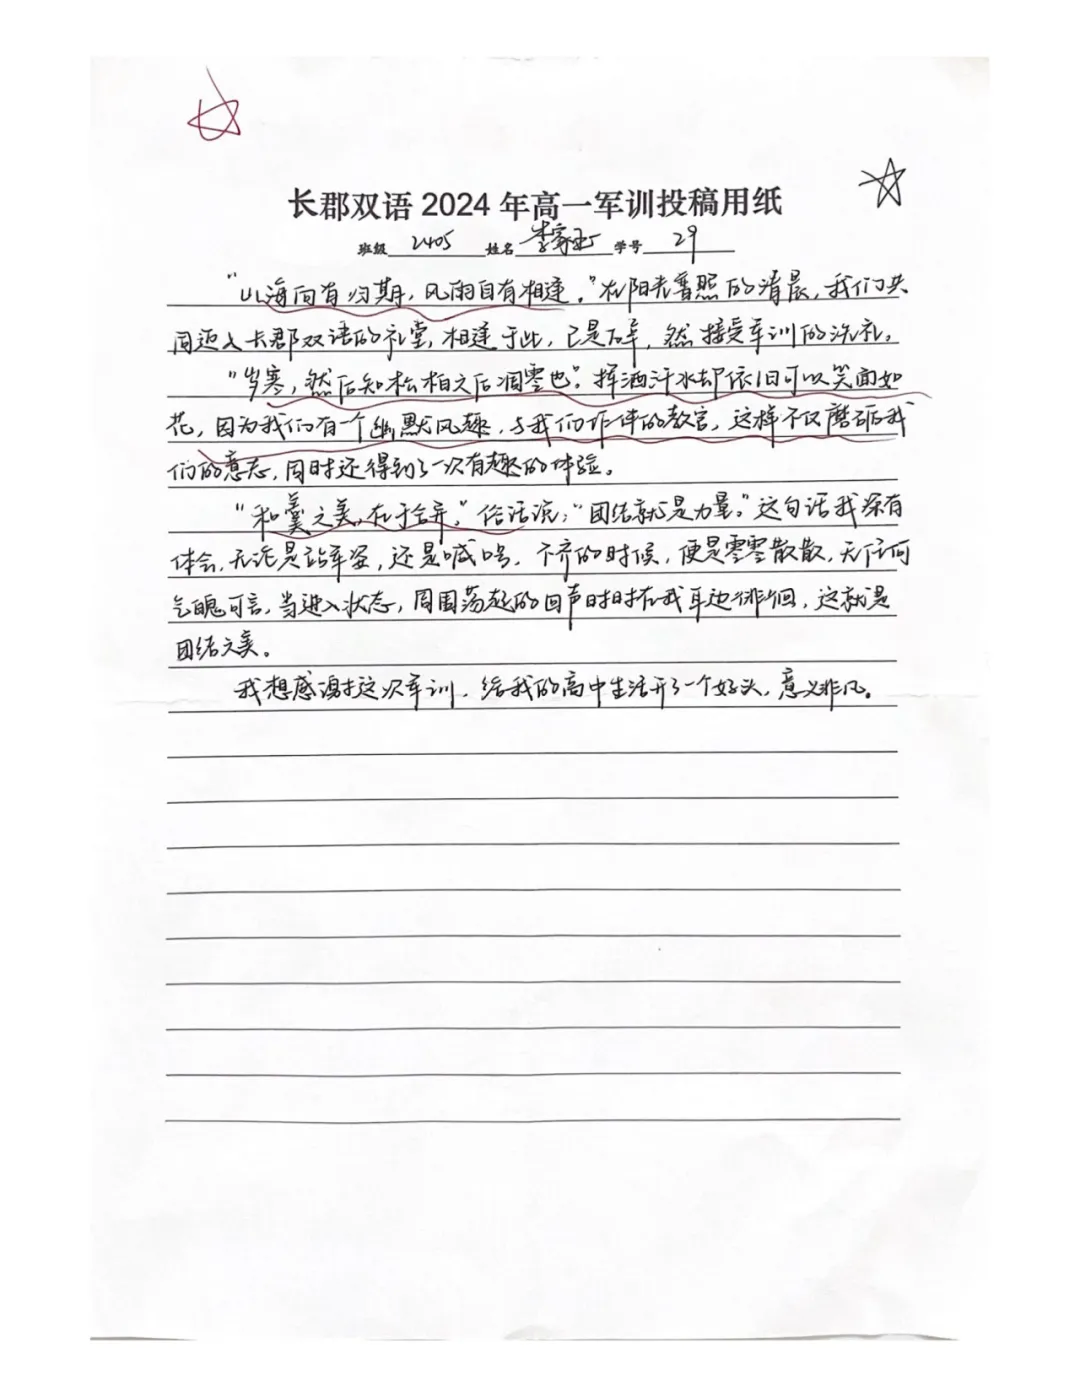 长郡双语 2024 年高一军训投稿用纸
班级 2405 姓名 李 学号 29
“山海向有归期，风雨自有相逢。”在阳光普照的清晨，我们共
同迈入长郡双语的礼堂，相逢于此，已是万幸，然接受军训的洗礼。
“岁寒，然后知松柏之后凋零也”。挥洒汗水却依旧可以笑面如
花，因为我们有一个幽默风趣，与我们作伴的教官，这样不仅磨砺我
们的意志，同时还得到了一次有趣的体验。
“和羹之美，在于合异。”俗话说：“团结就是力量。”这句话我深有
体会，无论是站军姿，还是喊口号，不齐的时候，便是零零散散，无任何
气魄可言，当进入状态，周围荡起的回声时时在我耳边徘徊，这就是
团结之美。
我想感谢这次军训，给我的高中生活开了一个好头，意义非凡。